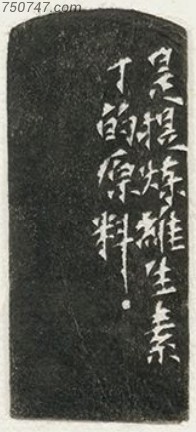 750747.com
是提炼維生素
丁的原料.